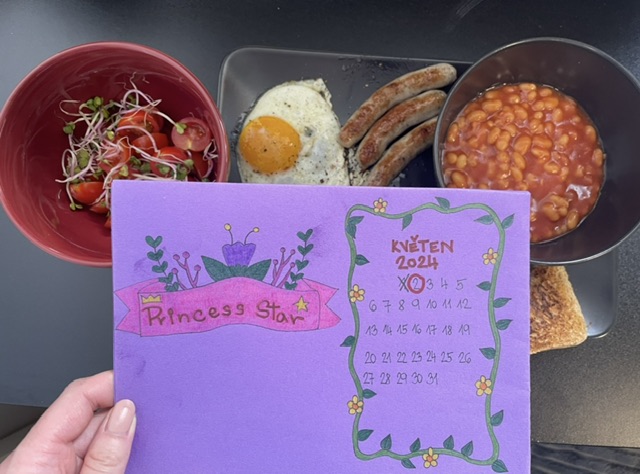 Princess Star
KVĚTEN
2024
1 2 3 4 5
6 7 8 9 10 11 12
13 14 15 16 17 18 19
20 21 22 23 24 25 26
27 28 29 30 31